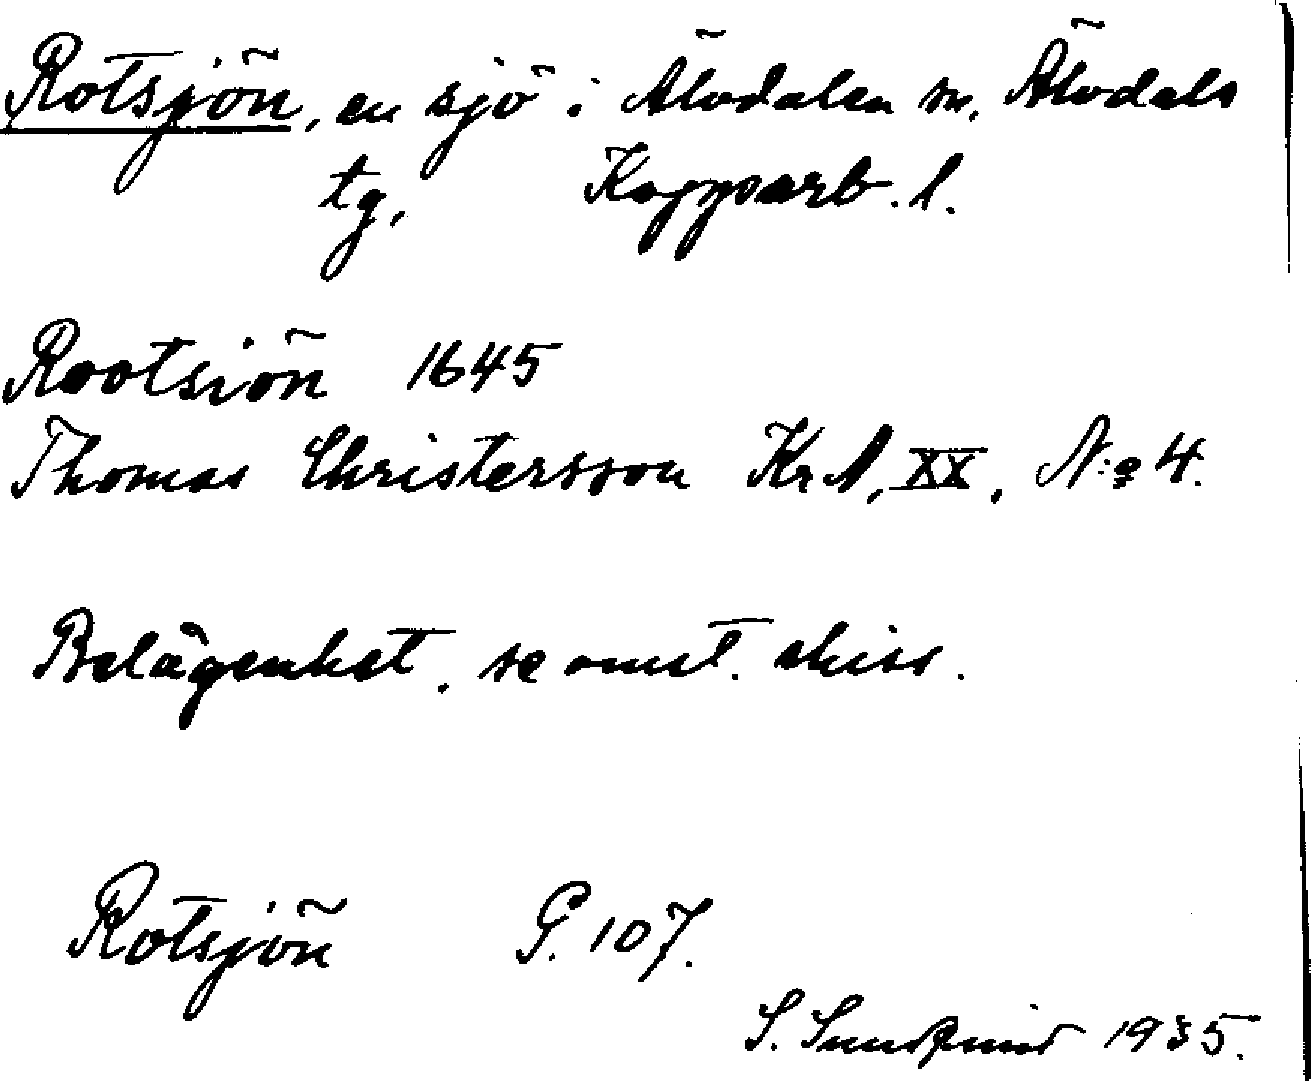 Rotsjön, en sjö i Älvdalen sn, Älvdals
tg, Kopparb. l.
Rootsiön 1645
Thomas Christersson KrA, XX, N:o 4.
Belägenhet. se omst. skiss.
Rotsjön G. 107.
S. Sundqvist 1935.